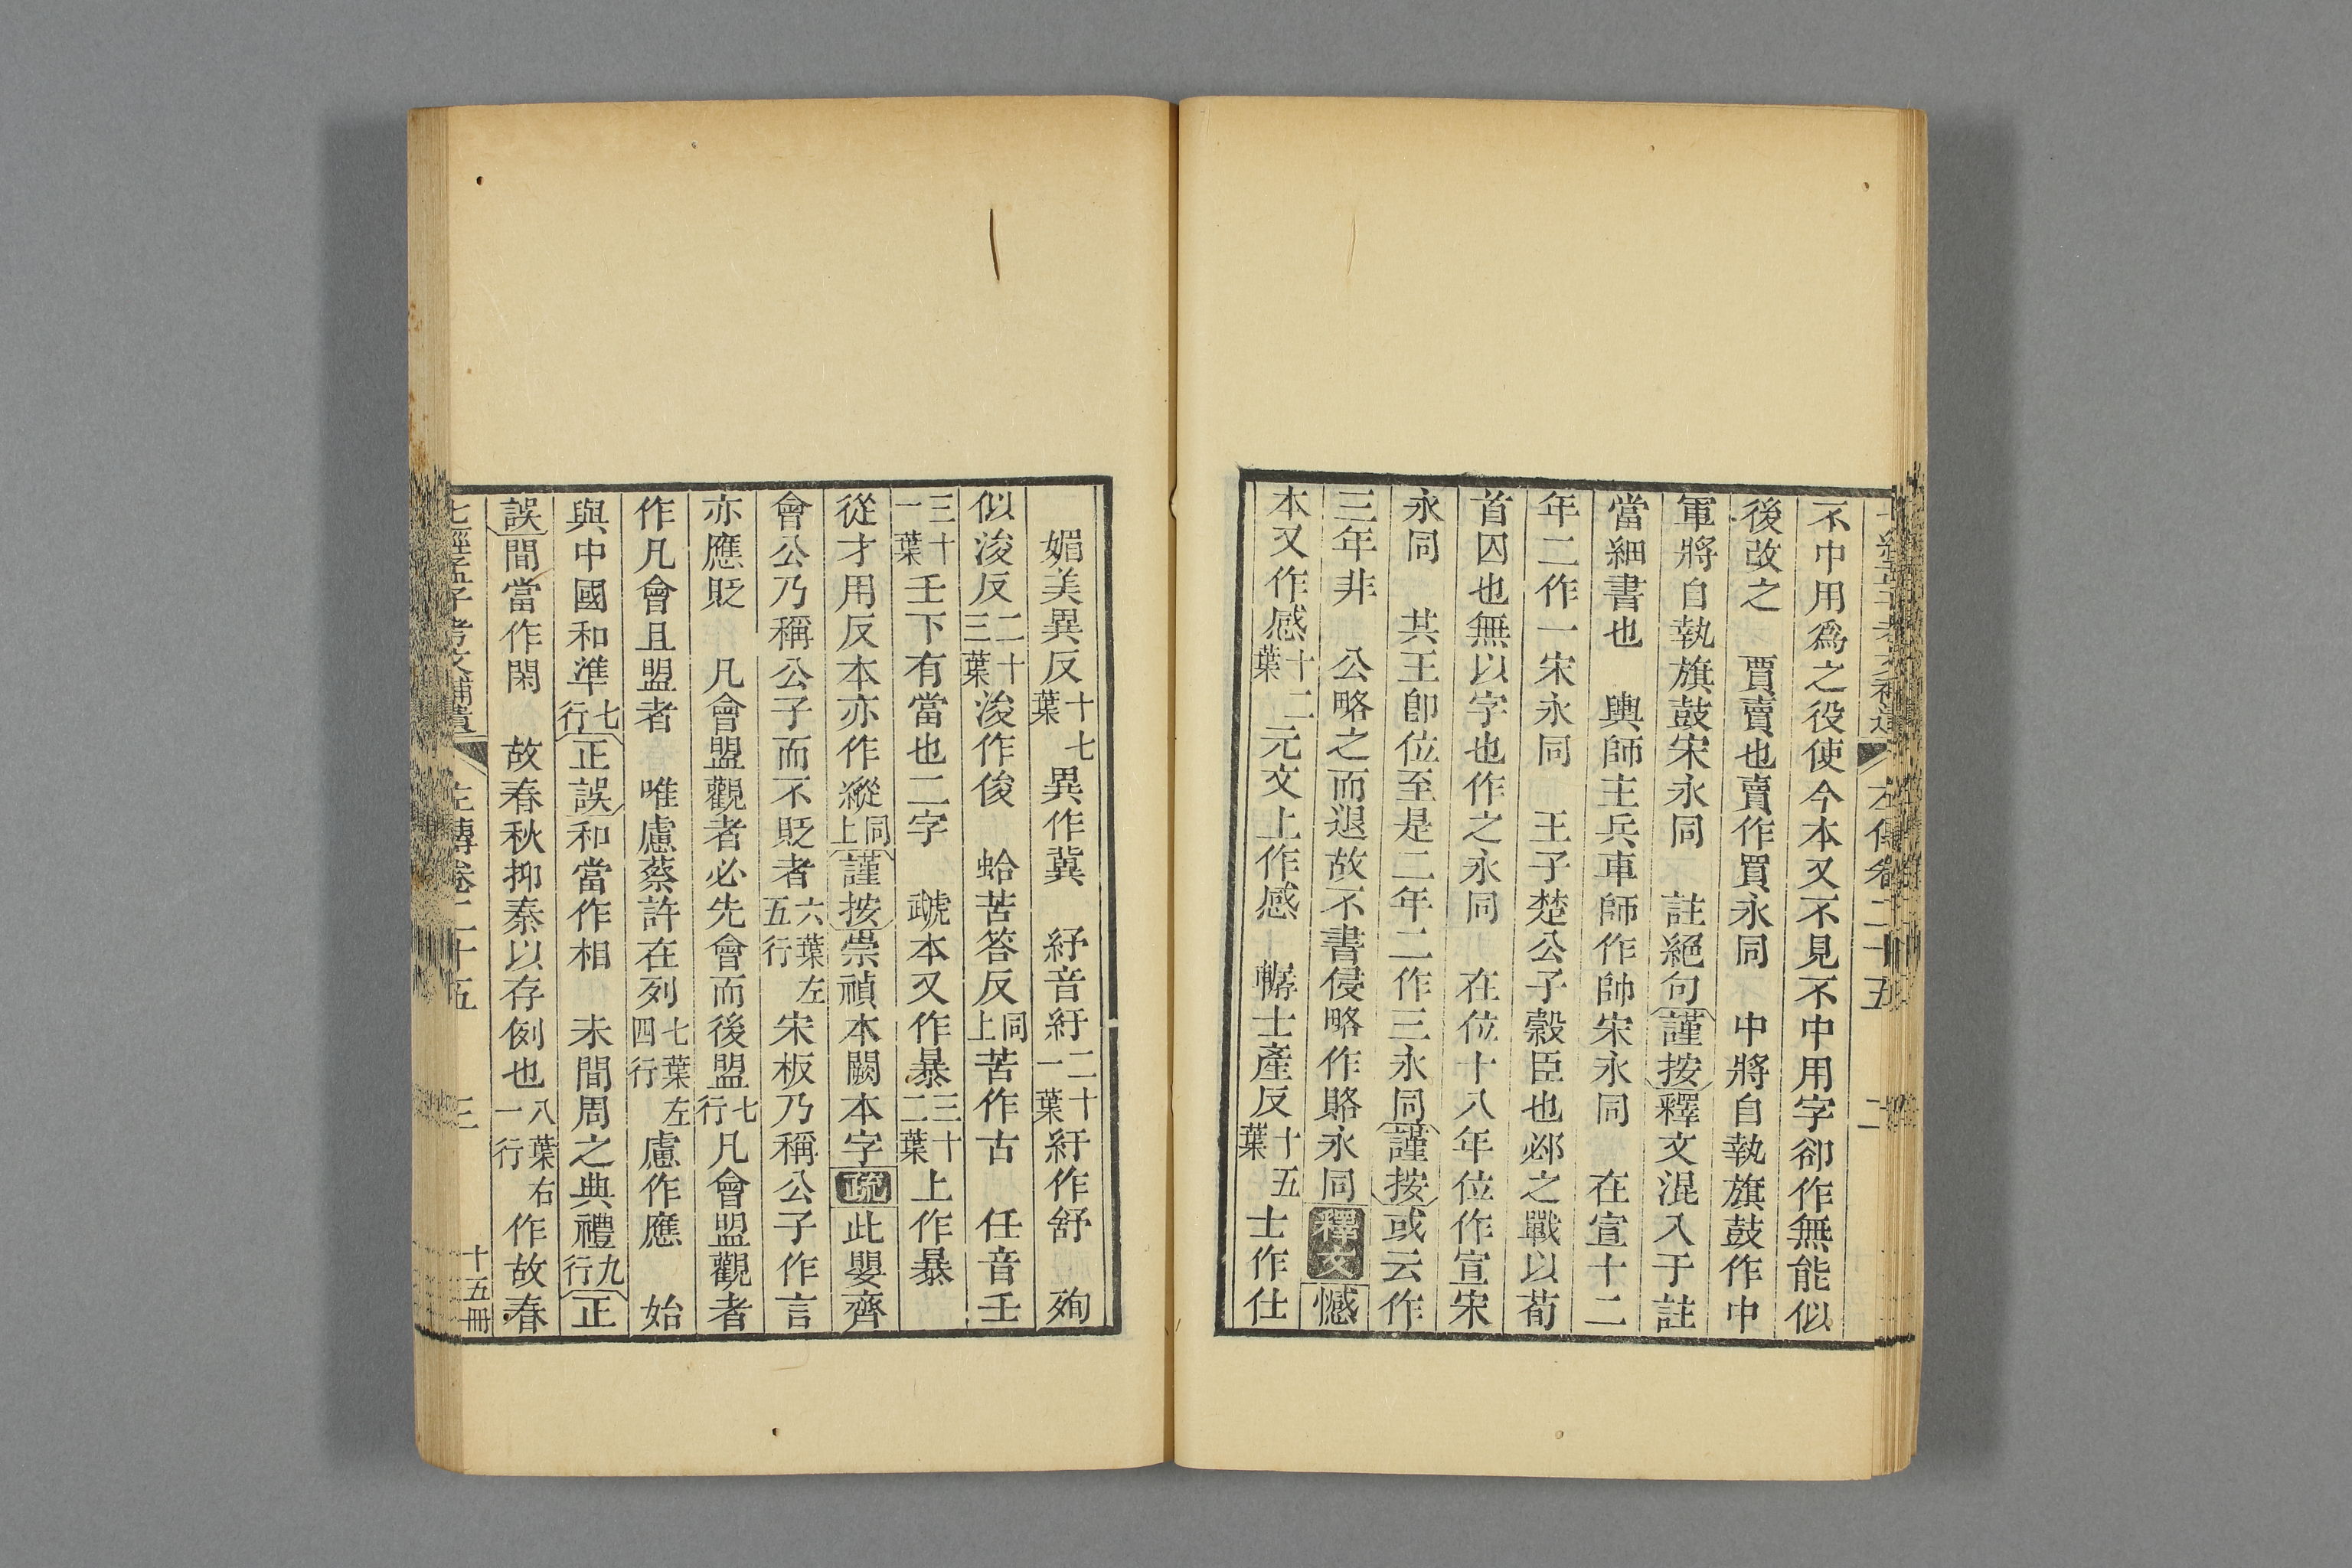 不中用爲之役使今本又不見不中用字卻作無能似
後改之　賈賣也賣作買永同　中將自執旗鼓作中
軍將自執旗鼓宋永同　註絕句謹按釋文混入于註
當細書也　輿師主兵車師作帥宋永同　在宣十二
年二作一宋永同　王子楚公子穀臣也邲之戰以荀
首囚也無以字也作之永同　在位十八年位作宣宋
永同　共王卽位至是二年二作三永同謹按或云作
三年非　公略之而退故不書侵略作賂永同釋文憾
本又作感十二葉元文上作感　轏士產反十五葉士作仕
媚美異反十七葉異作冀　紓音紆二十一葉紆作舒　殉
似浚反二十三葉浚作俊　蛤苦答反同上苦作古　任音壬
三十一葉壬下有當也二字　虣本又作暴三十二葉上作暴
從才用反本亦作縱同上謹按崇禎本闕本字疏此嬰齊
會公乃稱公子而不貶者六葉左五行宋板乃稱公子作言
亦應貶　凡會盟觀者必先會而後盟七行凡會盟觀者
作凡會且盟者　唯慮蔡許在列七葉左四行慮作應　始
與中國和準七行正誤和當作相　未間周之典禮九行正
誤間當作閑　故春秋抑秦以存例也八葉右一行作故春
七經孟子考文補遺　左傳卷二十五　三　十五冊